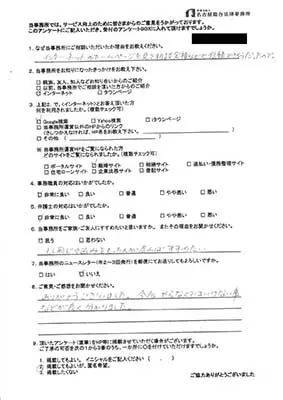 名古屋総合法律事務所
当事務所では、サービス向上のために皆さまからのご意見をうかがっております。
このアンケートにご記入いただき、受付のアンケートBOXに入れて頂けますでしょうか。
1. なぜ当事務所にご相談いただいたか理由をお教えください。
インターネットのホームページを見て
2. 当事務所をお知りになったきっかけをお教え下さい。
□ 親族、友人、知人などお知り合いからのご紹介
□ 以前、当事務所でご相談を頂いた方からのご紹介
☑ インターネット □ タウンページ
3. 上記2. で、インターネットとお答え頂いた方
何を利用されましたか。(複数チェック可)
☑ Google検索 □ Yahoo検索 □ iタウンページ
□ 当事務所運営以外のHPからのリンク
(さしつかえなければ、HP名をお教え下さい。 )
□ その他( )
※ 当事務所運営HPをご覧になられた方
どのサイトをご覧になられましたか。(複数チェック可)
□ ポータルサイト ☑ 離婚サイト □ 相続サイト □ 過払い・債務整理サイト
□ 住宅ローンサイト □ 企業法務サイト □ 登記サイト
4. 事務職員の対応はいかがでしたか。
☑ 非常に良い □ 良い □ 普通 □ やや悪い □ 悪い
5. 弁護士の対応はいかがでしたか。
☑ 非常に良い □ 良い □ 普通 □ やや悪い □ 悪い
6. 当事務所をご家族・ご友人にすすめたいと思いますか。またその理由をお聞かせください。
□ 思う □ 思わない
もし同じ悩みをもった人がいればすすめたい
7. 当事務所のニュースレター(年2~3回発行)を郵便にてお送りしてもよろしいですか。
□ はい ☑ いいえ
8. ご意見・ご感想をお聞かせください。
ありがとうございました。今后 やらなくてはいけない事
などがよく分かりました。
9. 頂いたアンケート(直筆)をHP等に掲載させていただく場合がございます。
ご了承の可否を次の1から3番のうち、一か所に○を付けていただけますでしょうか。
1. 掲載してもよい。イニシャルをご記入ください( . )
2. 掲載してもよいが、匿名希望。
3. 掲載したくない
ご協力ありがとうございました